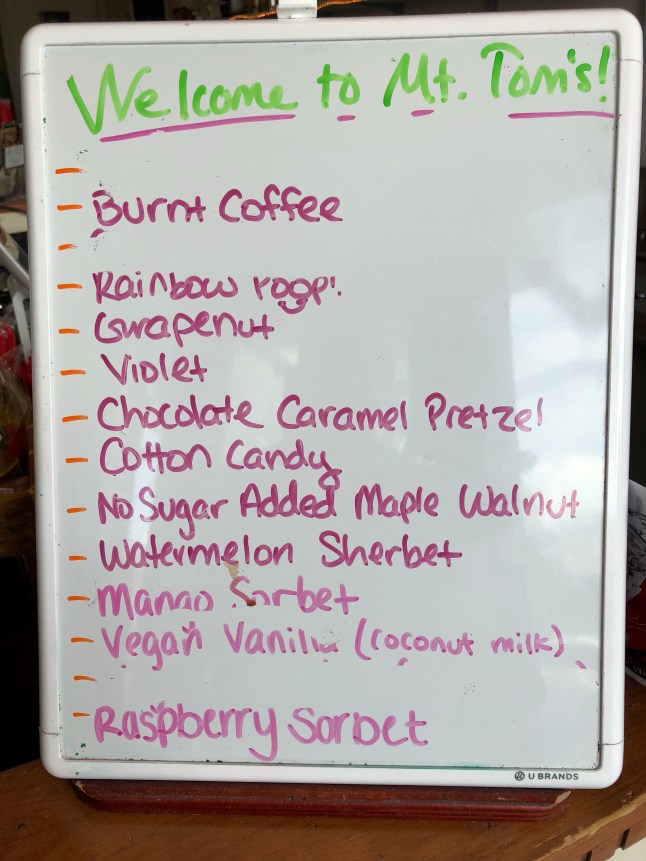 Welcome to Mt. Tom's!
Burnt Coffee
Rainbow
Grapenut
Violet
Chocolate Caramel Pretzel
Cotton Candy
No Sugar Added Maple Walnut
Watermelon Sherbet
Mango Sorbet
Vegan Vanilla (coconut milk)
Raspberry Sorbet
U BRANDS